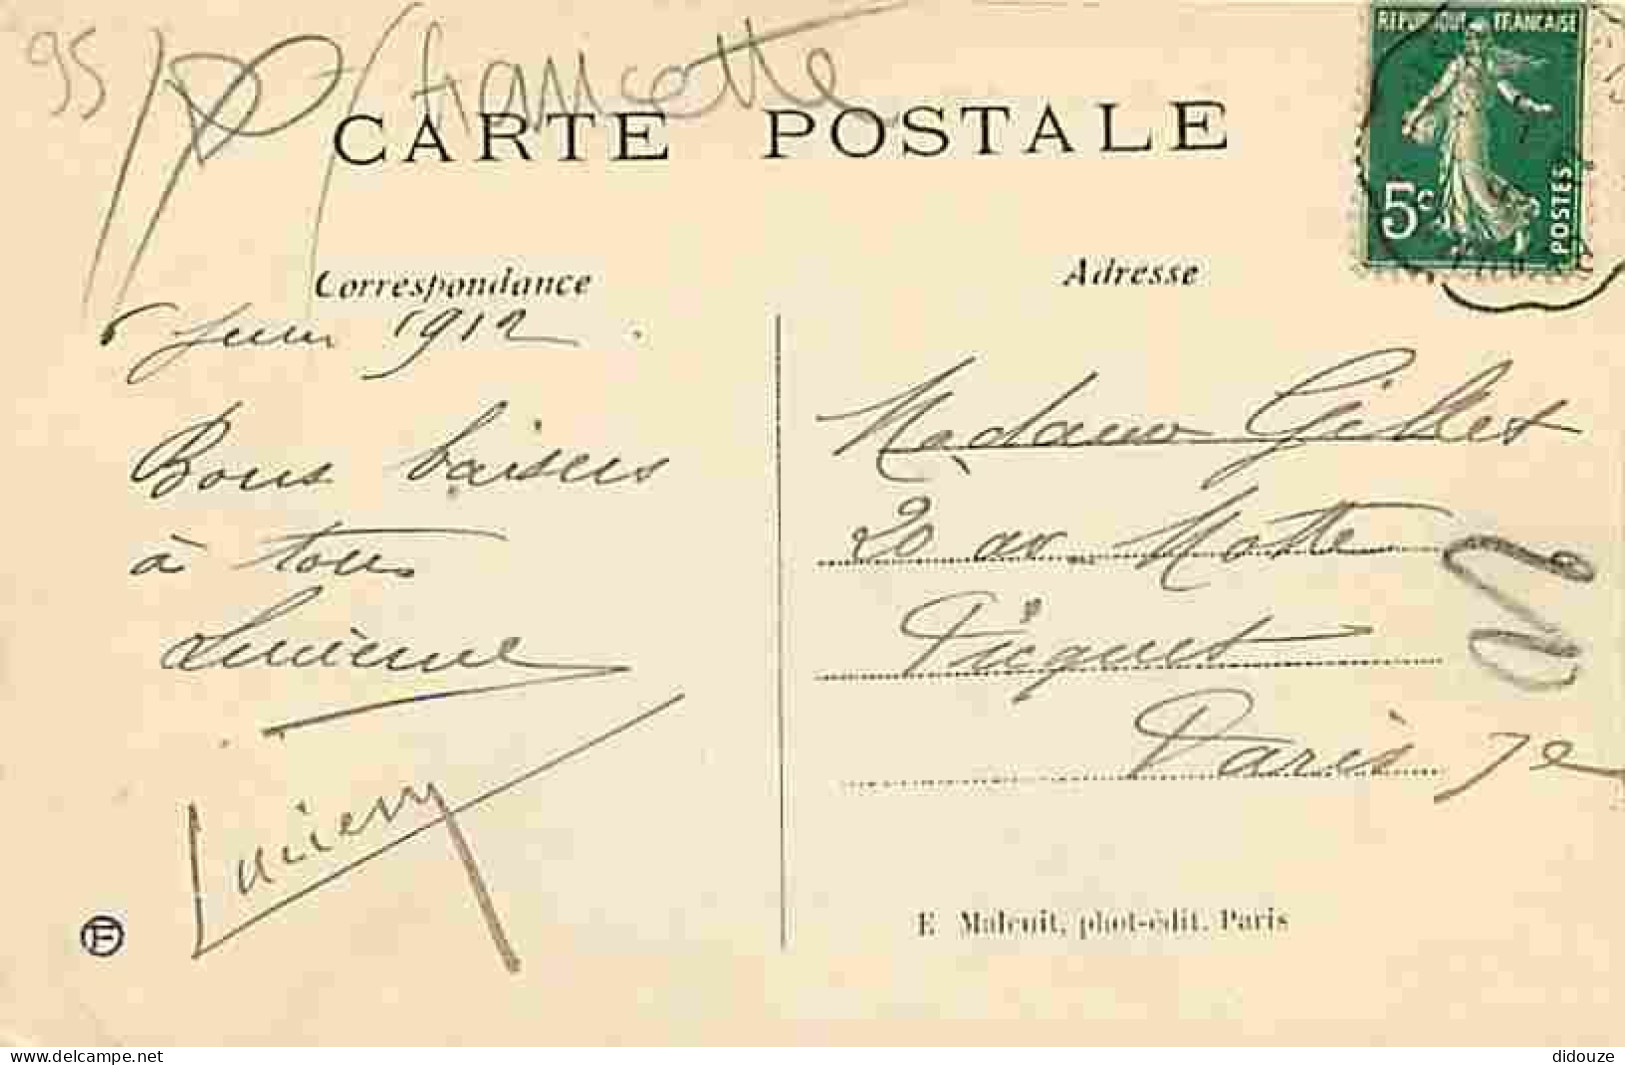 95 Francotte
CARTE POSTALE
REPUBLIQUE FRANCAISE
5c
POSTES
Correspondance
6 Juin 1912
Bons baisers
à tous
Lucienne
Lucien
Adresse
Madame Gillet
20 av. Motte
Picquet
Paris 7e
E. Maleuit, phot-édit. Paris
F
www.delcampe.net
didouze